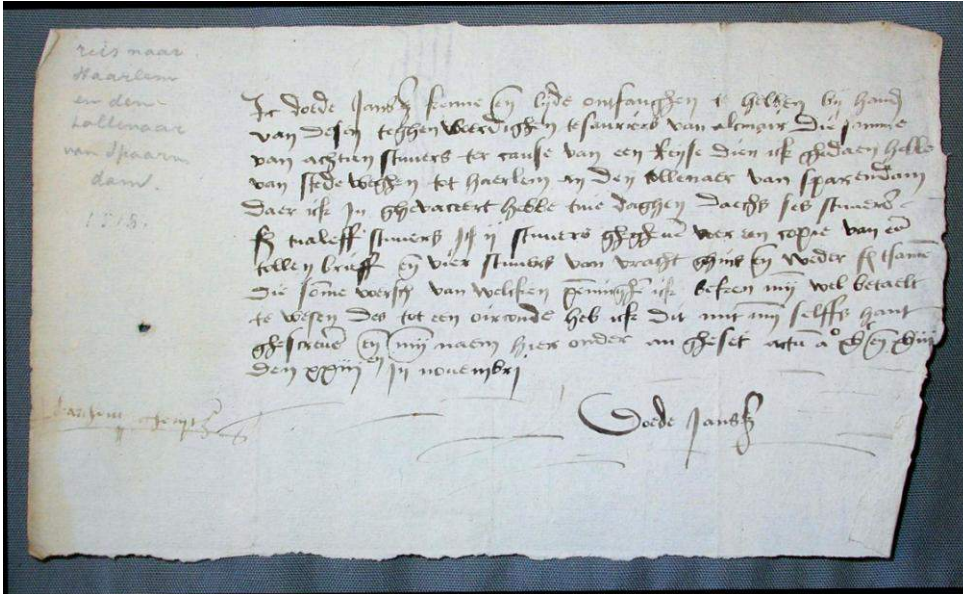 reis naar
Haarlem
en den
tollenaar
van Spaarn
dam.
1518.
Ic doede Jansz kenne en lyde ontfanghen te hebben by hand
van desen teghenweerdighen tesauriers van alcmair die somme
van achtien stuvers ter cause van een reyse dien ick ghedaen hebbe
van stede weghen tot haerlem an den tollenaer van sparendam
daer ick in ghevaceert hebbe twe daghen daechs ses stuvers
fc tualeff stuvers ij stuvers ghegheve veer een copie van ee
tollen brieff en vier stuvers van vracht ghins en weder fc tsame
die some voersch van welcken penningh ick bekeen my wel betaelt
te wesen des tot een oirconde heb ick dit mit myn selffs hant
ghescreve en myn naem hier onder an gheset actu ao xvc en xviii
den xxiii en in novembri
Doede Jansz